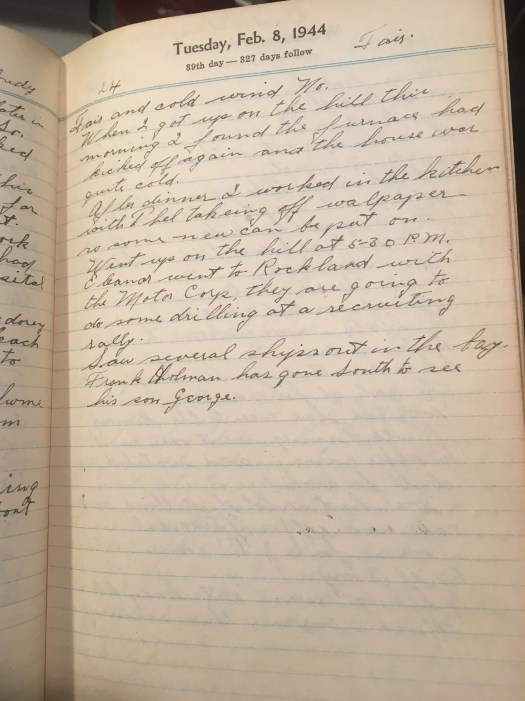 Tuesday, Feb. 8, 1944
39th day — 327 days follow
Fair.
24
Fair and cold wind No.
When I got up on the hill this
morning I found the furnace had
kicked off again and the house was
quite cold.
After dinner I worked in the kitchen
with Phel takeing off wallpaper
so some new can be put on.
Went up on the hill at 5-30 P.M.
Eleanor went to Rockland with
the Motor Corp, they are going to
do some drilling at a recruiting
rally.
Saw several ships out in the bay.
Frank Holman has gone South to see
his son George.